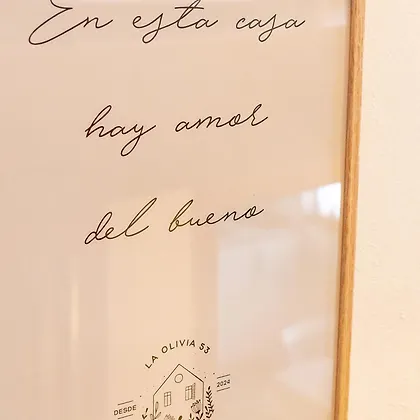 En esta casa
hay amor
del bueno
LA OLIVIA 53
DESDE 2024